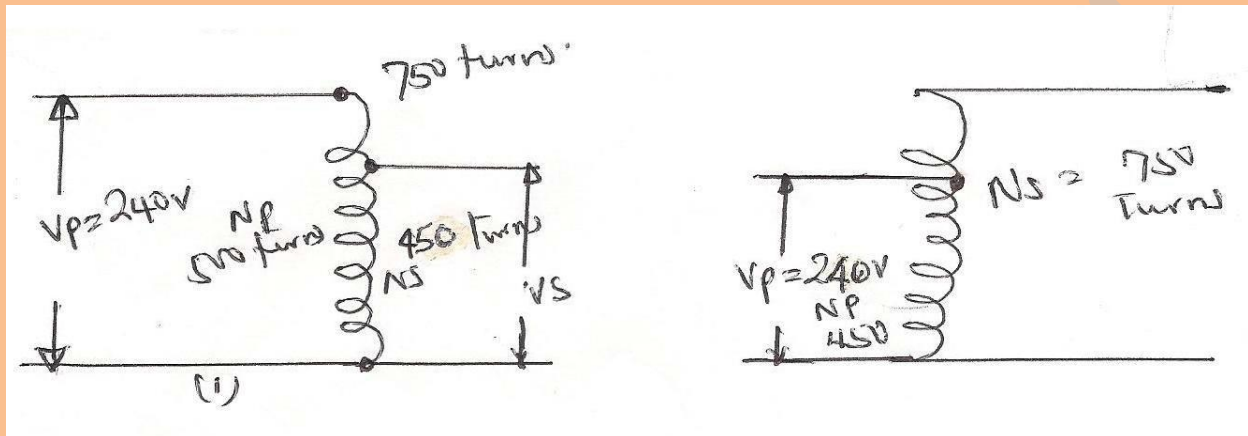 750 turns
Vp=240V
NP
500 turns
450 Turns
NS
VS
(i)
NS = 750
Turns
Vp=240V
NP
450